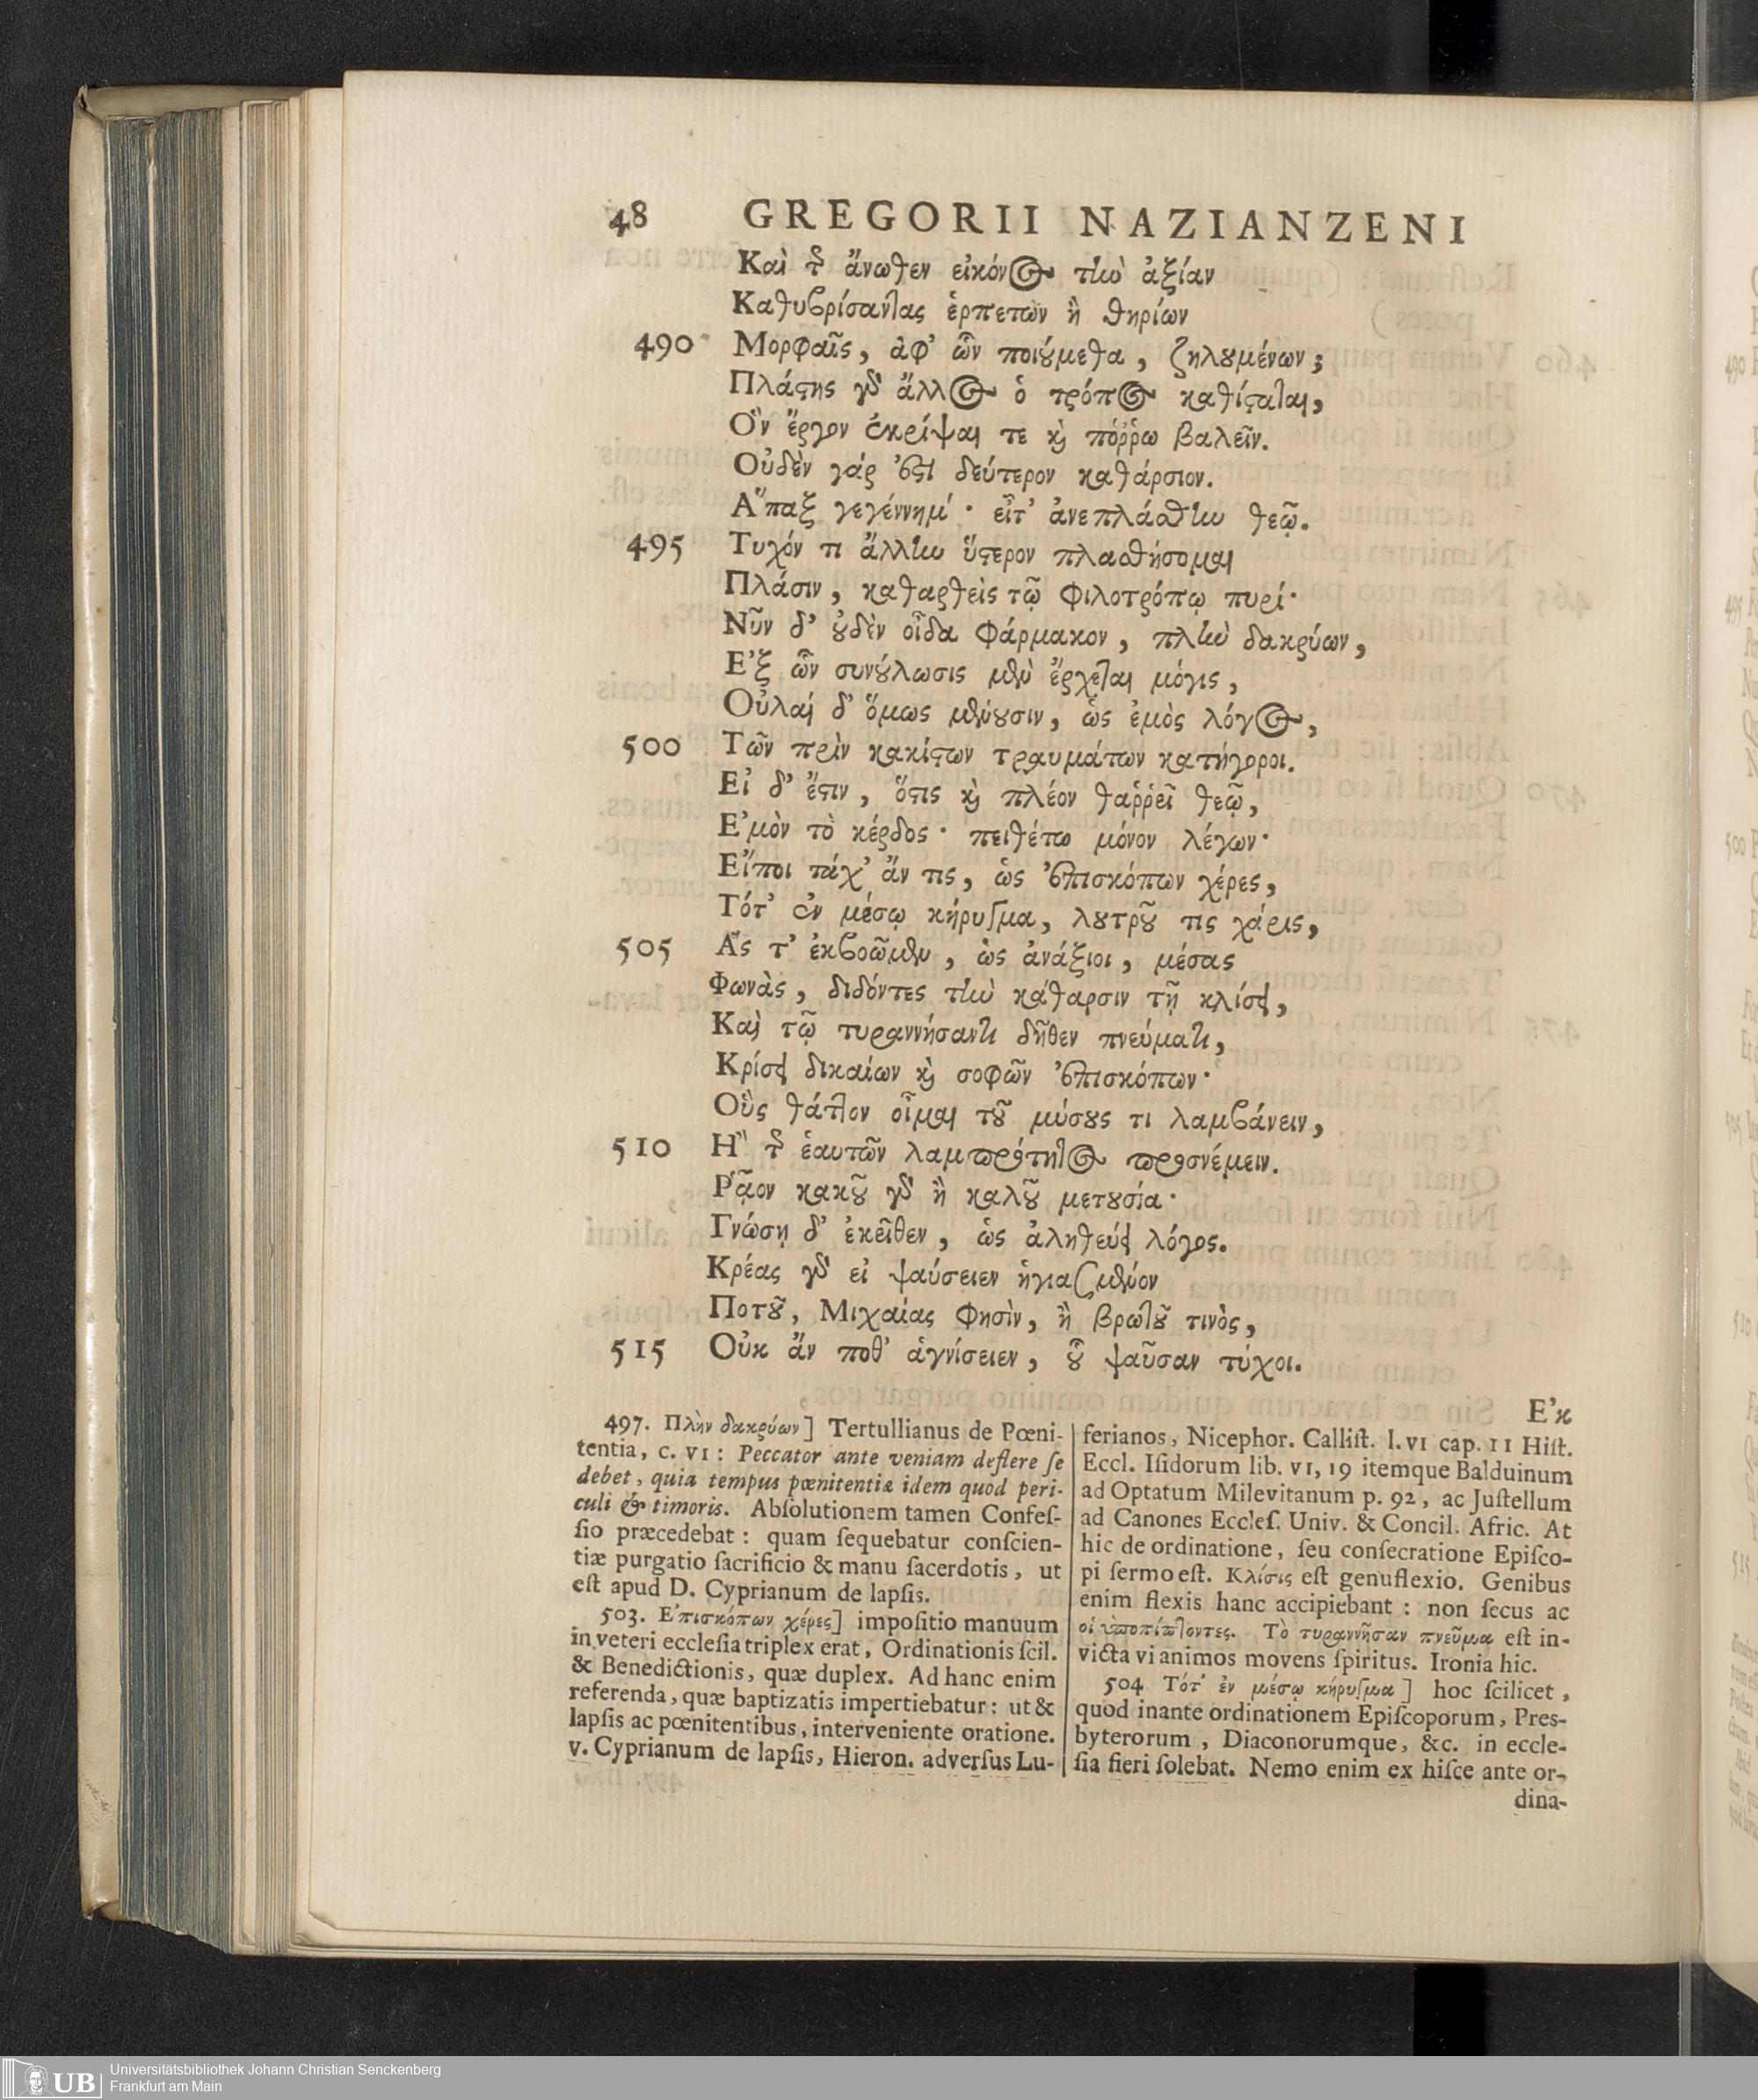 48 GREGORII NAZIANZENI
Καὶ τ῀ ἄνωθεν εἰκόνος τὴν ἀξίαν
Καθυβρίσαντας ἑρπετῶν ἢ θηρίων
490 Μορφαῖς, ἀφ' ὧν ποιούμεθα, ζηλουμένων;
Πλάστης γδ ἄλλος ὁ τρόπος καθίσταται,
Ὃν ἔργον ἐκρίψαι τε καὶ πόῤῥω βαλεῖν.
Οὐδὲν γάρ ἐστι δεύτερον καθάρσιον.
Ἅπαξ γεγέννημ'· εἶτ' ἀνεπλάσθην θεῷ.
495 Τυχόν τι ἄλλην ὕστερον πλασθήσομαι
Πλάσιν, καθαρθεὶς τῷ φιλοτρόπῳ πυρί·
Νῦν δ' οὐδὲν οἶδα φάρμακον, πλὴν δακρύων,
Ἐξ ὧν συνούλωσις μὲν ἔρχεται μόγις,
Οὐλαὶ δ' ὅμως μένουσιν, ὡς ἐμὸς λόγος,
500 Τῶν πρὶν κακίστων τραυμάτων κατήγοροι.
Εἰ δ' ἔστιν, ὅστις καὶ πλέον θαῤῥεῖ θεῷ,
Ἐμὸν τὸ κέρδος· πειθέτω μόνον λέγων·
Εἴποι τάχ' ἄν τις, ὡς ἐπισκόπων χέρες,
Τότ' ἐν μέσῳ κήρυγμα, λουτροῦ τις χάρις,
505 Ἅς τ' ἐκβοῶμεν, ὡς ἀνάξιοι, μέσας
Φωνὰς, διδόντες τὴν κάθαρσιν τῇ κλίσει,
Καὶ τῷ τυραννήσαντι δῆθεν πνεύματι,
Κρίσει δικαίων καὶ σοφῶν ἐπισκόπων·
Οὓς θάττον οἶμαι τοῦ μύσους τι λαμβάνειν,
510 Ἢ τ῀ ἑαυτῶν λαμπρότητος προσνέμειν.
Ῥᾷον κακοῦ γδ ἢ καλοῦ μετουσία·
Γνώσῃ δ' ἐκεῖθεν, ὡς ἀληθεύει λόγος.
Κρέας γδ εἰ ψαύσειεν ἡγιασμένον
Ποτοῦ, Μιχαίας φησὶν, ἢ βρωτοῦ τινὸς,
515 Οὐκ ἄν ποθ' ἁγνίσειεν, οὗ ψαῦσαν τύχοι.
Ἐκ
497. Πλὴν δακρύων] Tertullianus de Pœni-
tentia, c. VI: Peccator ante veniam deflere se
debet, quia tempus pœnitentiæ idem quod peri-
culi & timoris. Absolutionem tamen Confes-
sio præcedebat: quam sequebatur conscien-
tiæ purgatio sacrificio & manu sacerdotis, ut
est apud D. Cyprianum de lapsis.
503. Ἐπισκόπων χέρες] impositio manuum
in veteri ecclesia triplex erat, Ordinationis scil.
& Benedictionis, quæ duplex. Ad hanc enim
referenda, quæ baptizatis impertiebatur: ut &
lapsis ac pœnitentibus, interveniente oratione.
v. Cyprianum de lapsis, Hieron. adversus Lu-
ferianos, Nicephor. Callist. l. VI cap. 11 Hist.
Eccl. Isidorum lib. VI, 19 itemque Balduinum
ad Optatum Milevitanum p. 92, ac Justellum
ad Canones Eccles. Univ. & Concil. Afric. At
hic de ordinatione, seu consecratione Episco-
pi sermo est. Κλίσις est genuflexio. Genibus
enim flexis hanc accipiebant: non secus ac
οἱ ὑποπίπτοντες. Τὸ τυραννῆσαν πνεῦμα est in-
victa vi animos movens spiritus. Ironia hic.
504 Τότ' ἐν μέσῳ κήρυγμα] hoc scilicet,
quod in ante ordinationem Episcoporum, Pres-
byterorum, Diaconorumque, &c. in eccle-
sia fieri solebat. Nemo enim ex hisce ante or-
dina-
UB Universitätsbibliothek Johann Christian Senckenberg
Frankfurt am Main